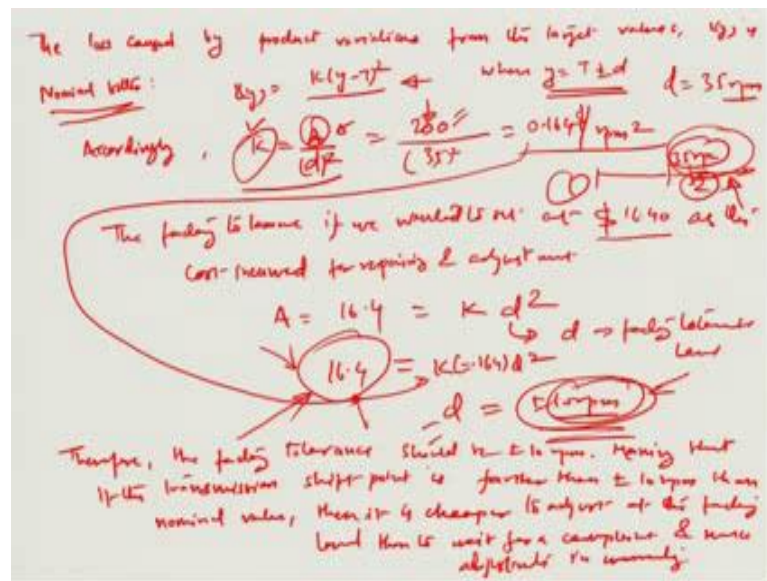 The loss caused by product variations from the target values, L(y) is
Nominal better: L(y) = K(y-T)² where y = T ± d d = 35 rpm
Accordingly, K = A/(d)² = 200/(35)² = 0.164 $/rpm²
35 rpm
The factory tolerance if we wanted to set at $16.40 as the
cost incurred for repairing & adjustment
A = 16.4 = K d²
d → factory tolerance
level
16.4 = K(=.164)d²
d = ± 10 rpm
Therefore, the factory tolerance should be ± 10 rpm. Meaning that
if the transmission shift point is further than ± 10 rpm than
nominal value, then it is cheaper to adjust at the factory
level than to wait for a complaint & make
adjustments in warranty.